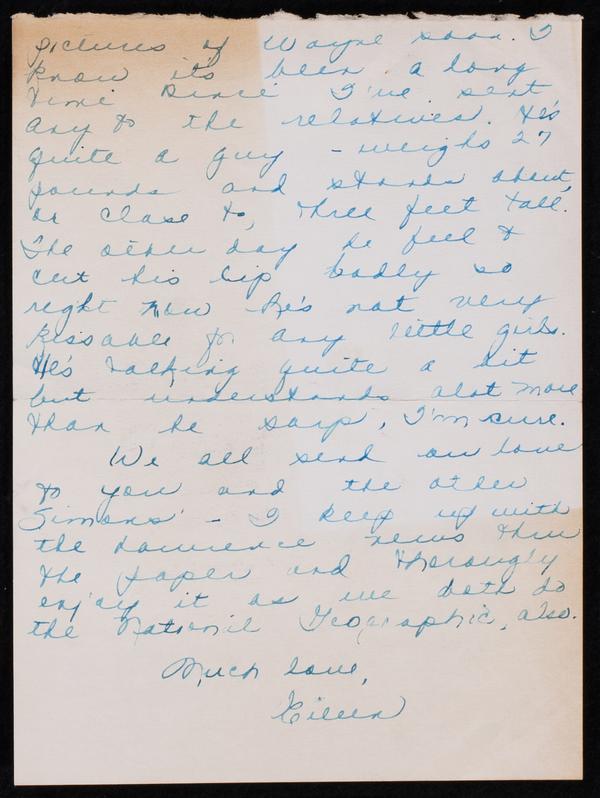 pictures of Wayne soon. I
know it's been a long
time since I've sent
any to the relatives. He's
quite a guy - weighs 27
pounds and stands about,
or close to, three feet tall.
The other day he feel &
cut his lip badly so
right now he's not very
kissable for any little girls.
He's talking quite a bit
but understands alot more
than he says, I'm sure.
We all send our love
to you and the other
Simons' - I keep up with
the Lawrence news thru
the paper and thoroughly
enjoy it as we both do
the National Geographic, also.
Much love,
Eileen